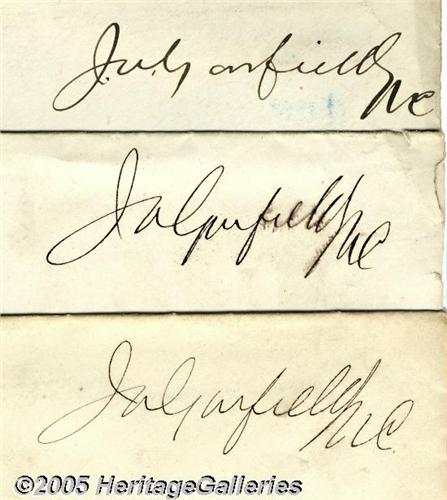 J.A. Garfield
MC
J A Garfield MC
J A Garfield
M.C.
©2005 HeritageGalleries